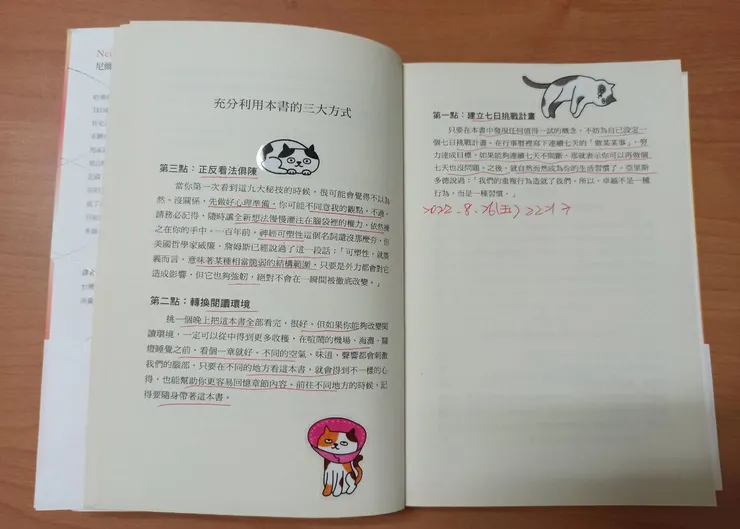 充分利用本書的三大方式
第三點：正反看法俱陳
當你第一次看到這九大秘技的時候，很可能會覺得不以為
然。沒關係，先做好心理準備，你可能不同意我的觀點，不過，
請務必記得，隨時讓全新想法慢慢灌注在腦袋裡的權力，依然操
之在你的手中。一百年前，神經可塑性這個名詞還沒那麼夯，但
美國哲學家威廉．詹姆斯已經說過了這一段話：「可塑性，就廣
義而言，意味著某種相當脆弱的結構範圍，只要是外力都會對它
造成影響。但它也夠強韌，絕對不會在一瞬間被徹底改變。」
第二點：轉換閱讀環境
挑一個晚上把這本書全部看完，很好。但如果你能夠改變閱
讀環境，一定可以從中得到更多收穫，在喧鬧的機場、海灘、關
燈睡覺之前，看個一章就好。不同的空氣、味道、聲響都會刺激
我們的腦部，只要在不同的地方看這本書，就會得到不一樣的心
得，也能幫助你更容易回憶章節內容。前往不同地方的時候，記
得要隨身帶著這本書。
第一點：建立七日挑戰計畫
只要在本書中發現任何值得一試的概念，不妨為自己設定一
個七日挑戰計畫。在行事曆裡寫下連續七天的「做某某事」，努
力達成目標。如果能夠連續七天不間斷，那就表示你可以再做個
七天也沒問題。之後，就自然而然成為你的生活習慣了。亞里斯
多德說過：「我們的重複行為造就了我們，所以，卓越不是一種
行為，而是一種習慣。」
2022．8．26(五)